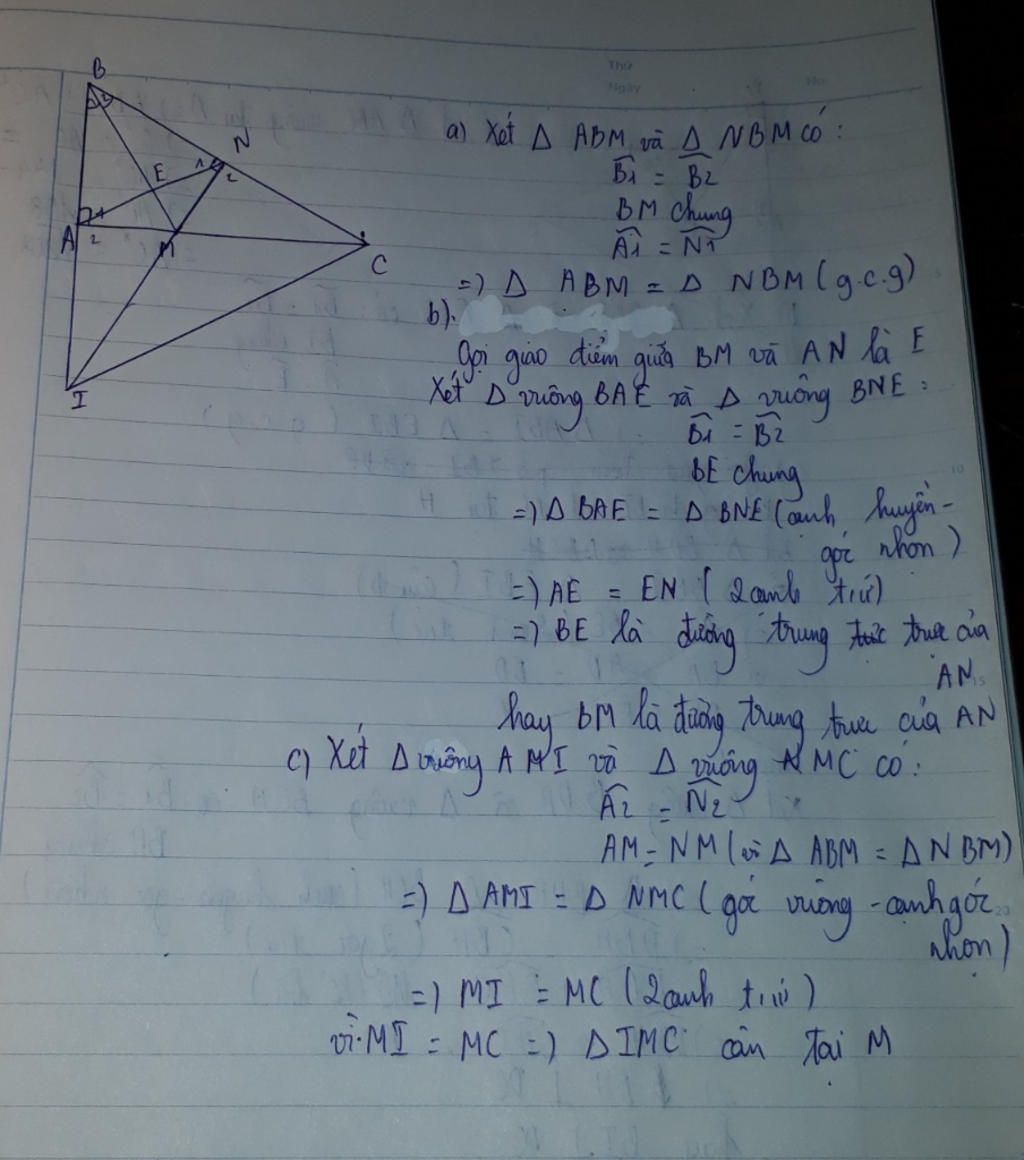 Thứ
Ngày
No.
B
1 2
N
1
2
E
A
1
2
M
C
I
a) Xét Δ ABM và Δ NBM có:
B̂1 = B̂2
BM chung
Â1 = N̂1
=) Δ ABM = Δ NBM (g.c.g)
b).
Gọi giao điểm giữa BM và AN là E
Xét Δ vuông BAE và Δ vuông BNE:
B̂1 = B̂2
BE chung
=) Δ BAE = Δ BNE (cạnh huyền -
góc nhọn)
=) AE = EN (2 cạnh t.ứ)
=) BE là đường trung trực của
AN
hay BM là đường trung trực của AN
c) Xét Δ vuông AMI và Δ vuông NMC có:
Â2 = N̂2
AM = NM (vì Δ ABM = Δ NBM)
=) Δ AMI = Δ NMC (góc vuông - cạnh góc
nhọn)
=) MI = MC (2 cạnh t.ứ)
vì MI = MC =) Δ IMC cân tại M